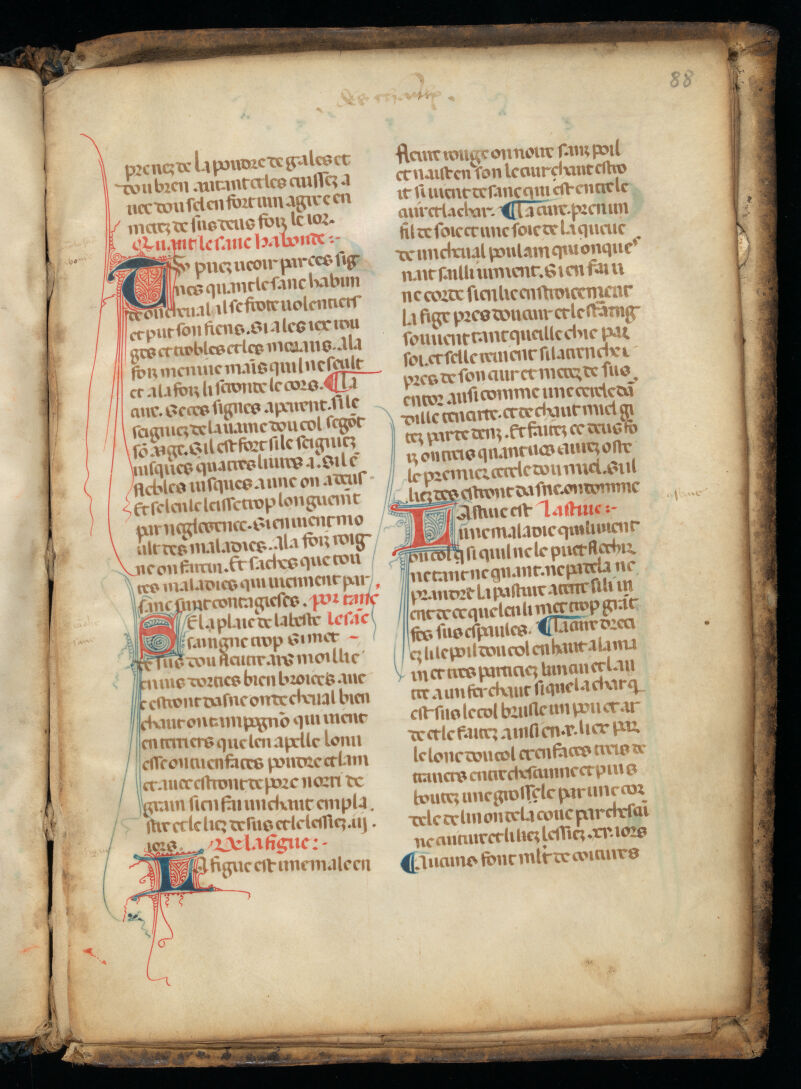 88
des chaux
prenez de la poudre de gales et
dou bren autant et les cuissez a
uec dou sel en fort uin agre e en
metez de sus deus foiz le ior.
Quant le sanc habonde :-
Tu puez ueoir par ces sig
nes quant le sanc habun
de ou cheual il se frote uolentiers
et put son fiens. Si a les iex rou
ges et trobles et les
foiz menuie mais quil ne seult
et a la foiz li le cors. ¶ La
cure. Se ces signes aperent. si le
seigniez de la uaine dou col segōt
sō aige. Sil est fort si le seigniez
iusques quatres liures a. Sil ē
flebles iusques a une ou a deus.
Et se len le leisse trop longuemt
par negligence. Si en uient mo
ult des maladies. A la foiz roig
ne ou farcin. Et saches que tou
tes maladies qui uiennent par
sanc sunt contagieses. por tanc
Se la plaie de la beste le sāc
sangne trop si met
de sus dou
dorties bien broiees. aue
c estront dasne ou de cheual bien
chaut ou campagnō qui uient
en terriers que len apelle lonu
esse ou tu en faces poudre et lam
et auec estront de porc norri de
grain si en fai un chaut empla
stre et le liez de sus et le lessiez .iii.
iors. De la figue :-
La figue est une male en
fleure rouge ou noire sanz poil
et naist en son le cuir chaut estro
it si uient de sanc qui est entre le
cuir et la char. ¶ La cure. pren un
fil de soie et une soie de la queue
de un cheual poulain qui onques
nait sailli iument. Si en fai u
ne corde si en lie enstroicement
la fige pres dou cuir et le stāing
souuient tant queille chie par
soi. et selle reuient si la trenche i
pres de son cuir et metez de sus
entor ausi comme une cercle dā
dille ten carte. et de chaut miel gi
tez par de denz. Et faitez ce deus fo
iz ou treis quant uos aurez oste
le premier cercle dou miel. Si il
liez des estront dasne. ou domme
Lastiue est lastiue :-
une maladie quili uient
ou col q̄ si quil ne le puet flechir
ne tant ne quant. ne padela ne
prandre la pasture a terre si li ui
ent de ce que len li met trop grāt
fes sus espaules. ¶ La cure dreci
ez li le poil dou col en haut a la ma
in et tres parciez lun cui et lau
tre a un fer chaut si que la char q̄
est sus le col brusle un pou et ar
de et le faitez ainsi en .x. liex par
le lonc dou col et en faces treis de
trauers entre chescunne et puis
boutez une grosselle par une cor
dele de lin ou de la coue par chescū
ne cuiture et li liez lessiez .xv. iors
¶ Aucuns font mlt de coitures